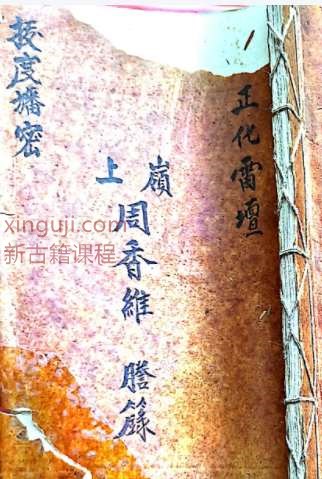 正化雷壇
嶺上
周香維 謄籙
授度密
xinguji.com
新古籍课程